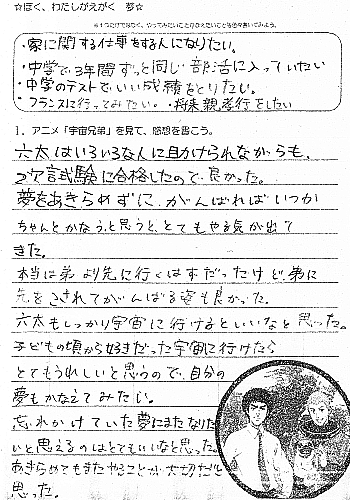 ☆ぼく、わたしがえがく 夢☆
・家に関する仕事をする人になりたい。
・中学で3年間ずっと同じ部活に入っていたい
・中学のテストでいい成績をとりたい。
・フランスに行ってみたい。・将来親孝行をしたい
1. アニメ「宇宙兄弟」を見て、感想を書こう。
六太はいろいろな人に助けられながらも、
2次試験に合格したので、良かった。
夢をあきらめずに、がんばればいつか
ちゃんとかなうと思うと、とてもやる気が出て
きた。
本当は弟より先に行くはずだったけど、弟に
先をこされてがんばる姿も良かった。
六太もしっかり宇宙に行けるといいなと思った。
子どもの頃から好きだった宇宙に行けたら
とてもうれしいと思うので、自分の
夢もかなえてみたい。
忘れかけていた夢にまたなりた
いと思えるのはとてもいいなと思った。
あきらめてもまたやることが大切だと
思った。